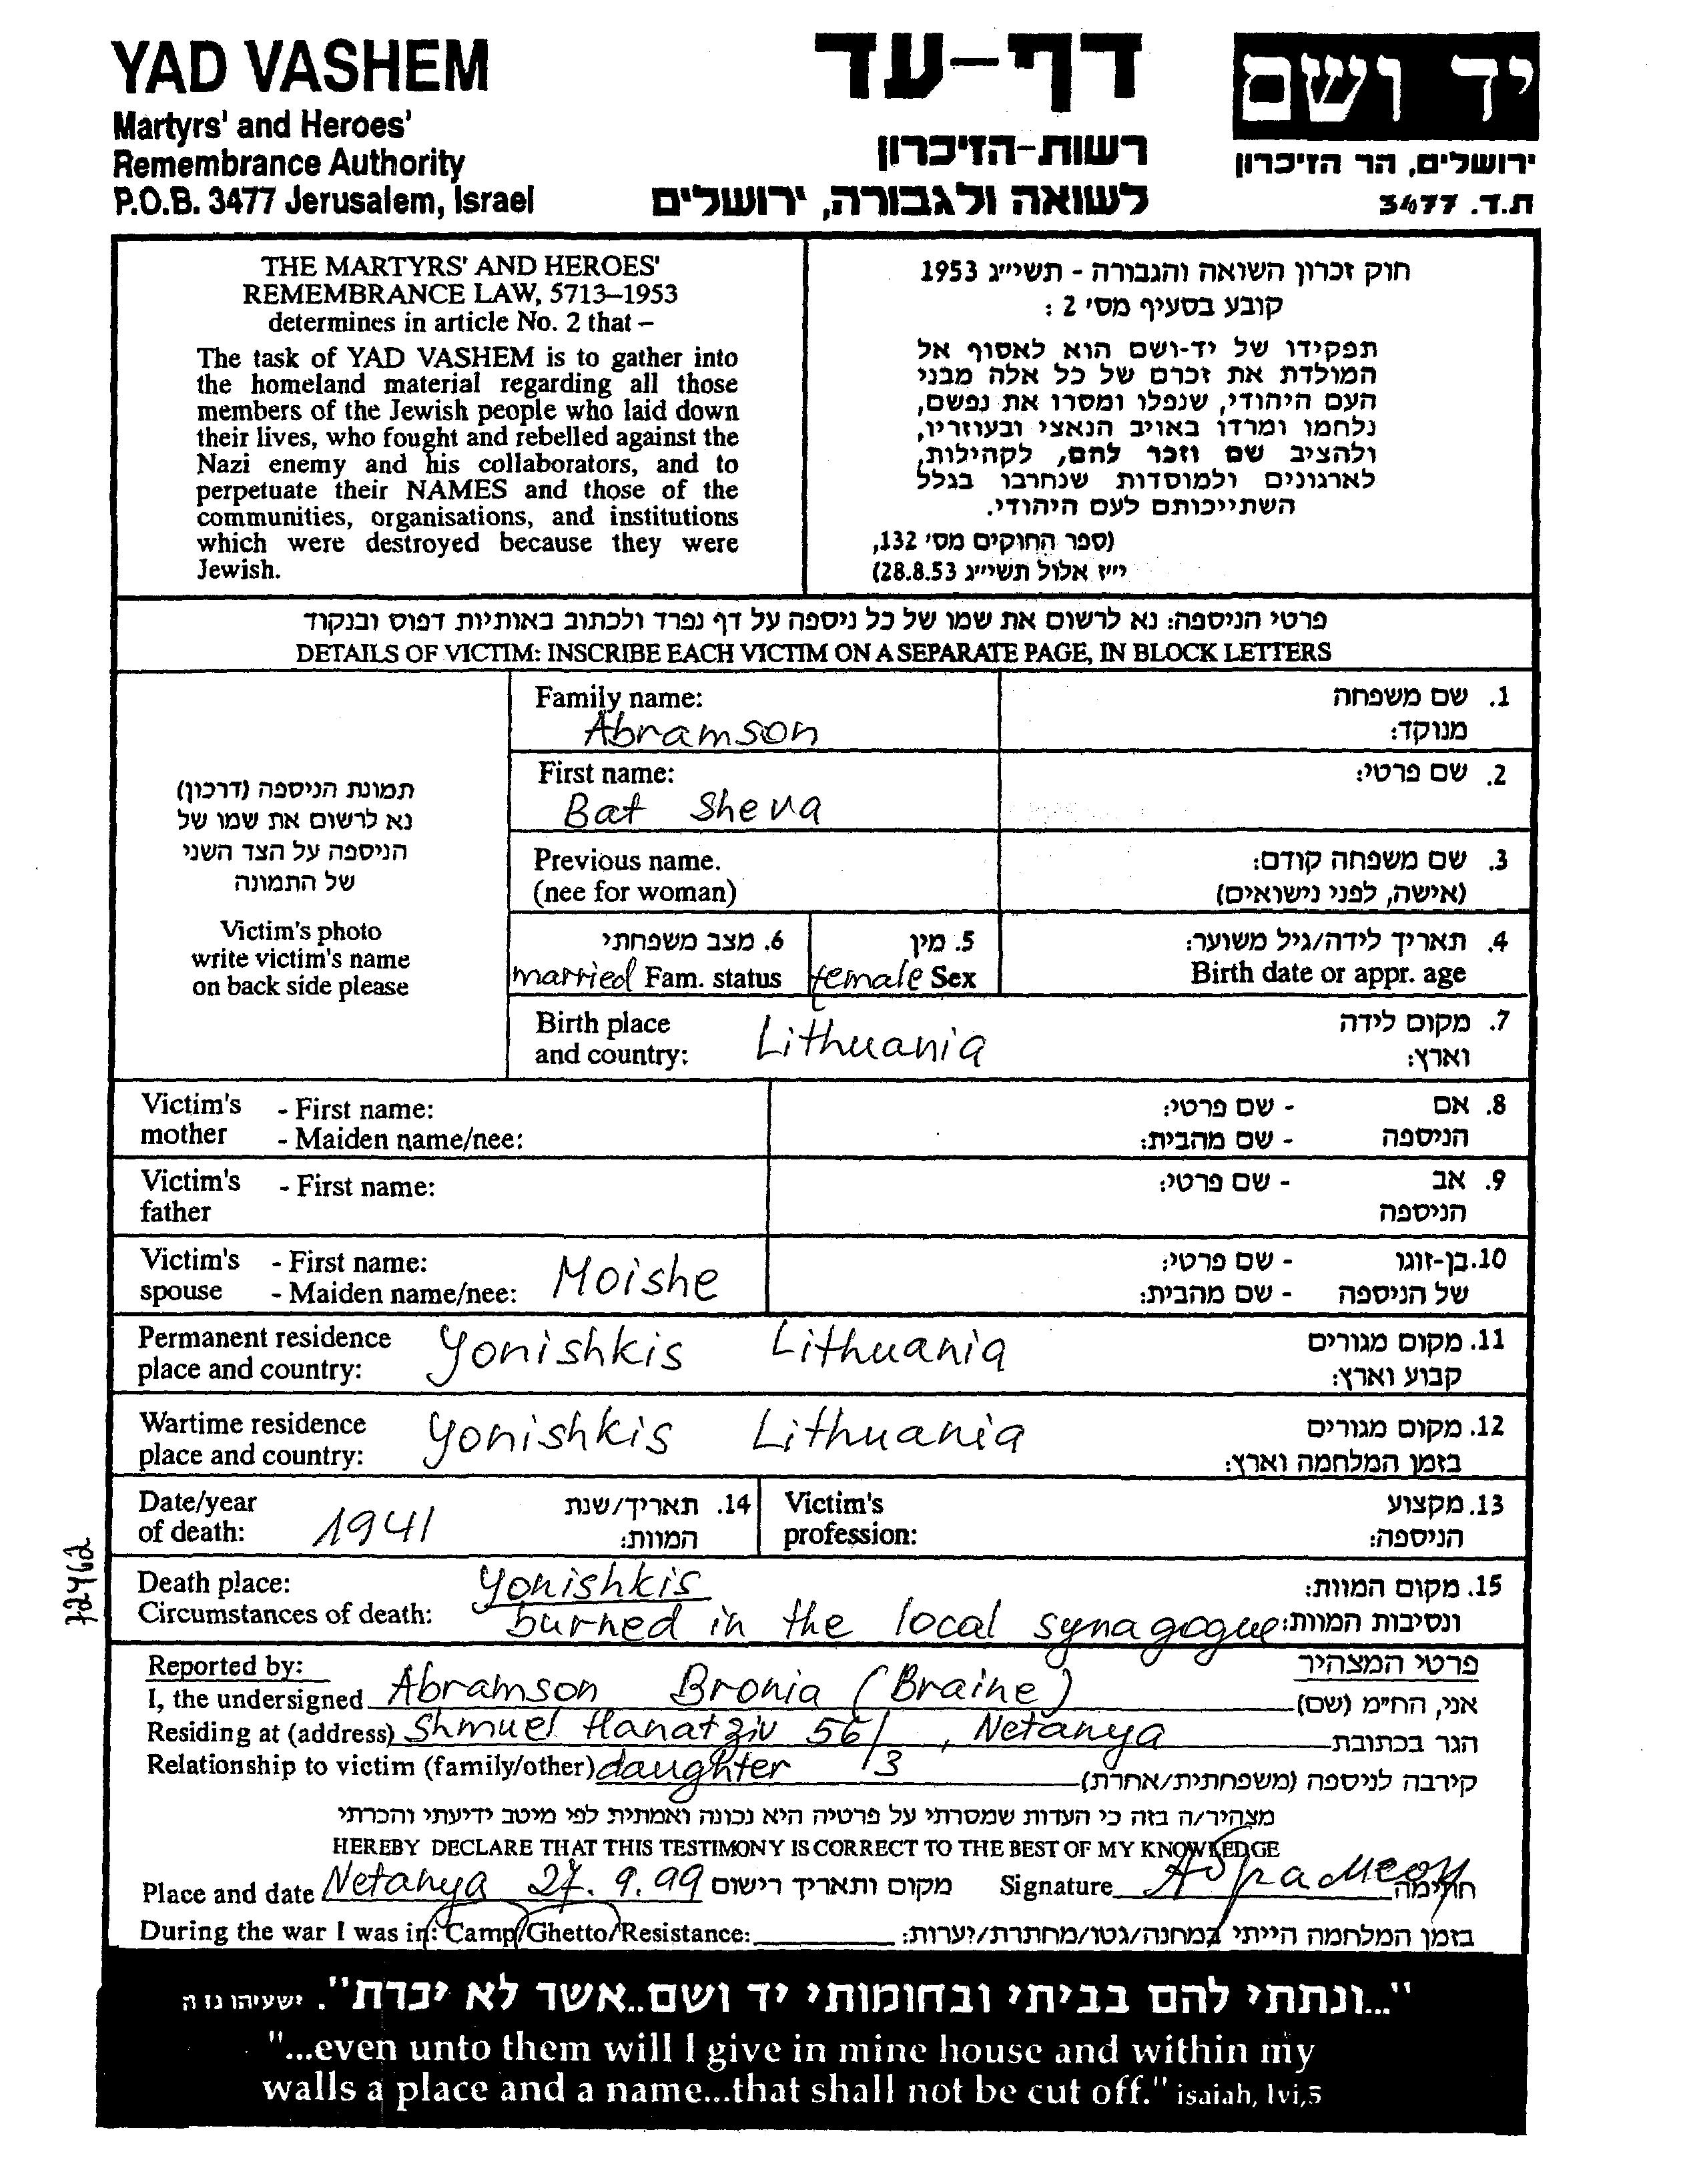 YAD VASHEM
Martyrs' and Heroes'
Remembrance Authority
P.O.B. 3477 Jerusalem, Israel
דף-עד
רשות-הזיכרון
לשואה ולגבורה, ירושלים
יד ושם
ירושלים, הר הזיכרון
ת.ד. 3477
THE MARTYRS' AND HEROES'
REMEMBRANCE LAW, 5713–1953
determines in article No. 2 that –
The task of YAD VASHEM is to gather into
the homeland material regarding all those
members of the Jewish people who laid down
their lives, who fought and rebelled against the
Nazi enemy and his collaborators, and to
perpetuate their NAMES and those of the
communities, organisations, and institutions
which were destroyed because they were
Jewish.
חוק זכרון השואה והגבורה - תשי״ג 1953
קובע בסעיף מס׳ 2 :
תפקידו של יד-ושם הוא לאסוף אל
המולדת את זכרם של כל אלה מבני
העם היהודי, שנפלו ומסרו את נפשם,
נלחמו ומרדו באויב הנאצי ובעוזריו,
ולהציב שם וזכר להם, לקהילות,
לארגונים ולמוסדות שנחרבו בגלל
השתייכותם לעם היהודי.
(ספר החוקים מס׳ 132,
י״ז אלול תשי״ג 28.8.53)
פרטי הניספה: נא לרשום את שמו של כל ניספה על דף נפרד ולכתוב באותיות דפוס ובנקוד
DETAILS OF VICTIM: INSCRIBE EACH VICTIM ON A SEPARATE PAGE, IN BLOCK LETTERS
תמונת הניספה (דרכון)
נא לרשום את שמו של
הניספה על הצד השני
של התמונה
Victim's photo
write victim's name
on back side please
Family name: 1. שם משפחה
Abramson מנוקד:
First name: 2. שם פרטי:
Bat Sheva
Previous name. 3. שם משפחה קודם:
(nee for woman) (אישה, לפני נישואים)
6. מצב משפחתי 5. מין 4. תאריך לידה/גיל משוער:
married Fam. status female Sex Birth date or appr. age
Birth place 7. מקום לידה
and country: Lithuania וארץ:
Victim's - First name: - שם פרטי: 8. אם
mother - Maiden name/nee: - שם מהבית: הניספה
Victim's - First name: - שם פרטי: 9. אב
father הניספה
Victim's - First name: Moishe - שם פרטי: 10. בן-זוגו
spouse - Maiden name/nee: - שם מהבית: של הניספה
Permanent residence Yonishkis Lithuania 11. מקום מגורים
place and country: קבוע וארץ:
Wartime residence Yonishkis Lithuania 12. מקום מגורים
place and country: בזמן המלחמה וארץ:
Date/year 14. תאריך/שנת Victim's 13. מקצוע
of death: 1941 המוות: profession: הניספה:
72462
Death place: Yonishkis 15. מקום המוות:
Circumstances of death: burned in the local synagogue ונסיבות המוות:
Reported by: פרטי המצהיר
I, the undersigned Abramson Bronia (Braine) אני, הח״מ (שם)
Residing at (address) Shmuel Hanatziv 56/3, Netanya הגר בכתובת
Relationship to victim (family/other) daughter קירבה לניספה (משפחתית/אחרת)
מצהיר/ה בזה כי העדות שמסרתי על פרטיה היא נכונה ואמתית לפי מיטב ידיעתי והכרתי
HEREBY DECLARE THAT THIS TESTIMONY IS CORRECT TO THE BEST OF MY KNOWLEDGE
Place and date Netanya 27.9.99 מקום ותאריך רישום Signature Абрамсон חתימה
During the war I was in: Camp/Ghetto/Resistance: בזמן המלחמה הייתי במחנה/גטו/מחתרת/יערות:
"...ונתתי להם בביתי ובחומותי יד ושם..אשר לא יכרת". ישעיהו נו ה
"...even unto them will I give in mine house and within my
walls a place and a name...that shall not be cut off." isaiah, lvi,5